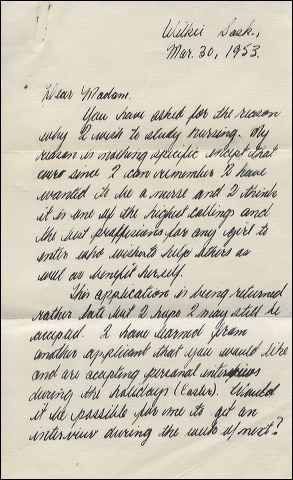 Wilkie Sask,
Mar. 30, 1953.
Dear Madam.
You have asked for the reason
why I wish to study nursing. My
reason is nothing specific except that
ever since I can remember I have
wanted to be a nurse and I think
it is one of the highest callings and
the best proffesions for any girl to
enter who wishes to help others as
well as benefit herself.
This application is being returned
rather late but I hope I may still be
accepted. I have learned from
another applicant that you would like
and are accepting personal interviews
during the holidays (Easter). Would
it be possible for me to get an
interview during the week of next?